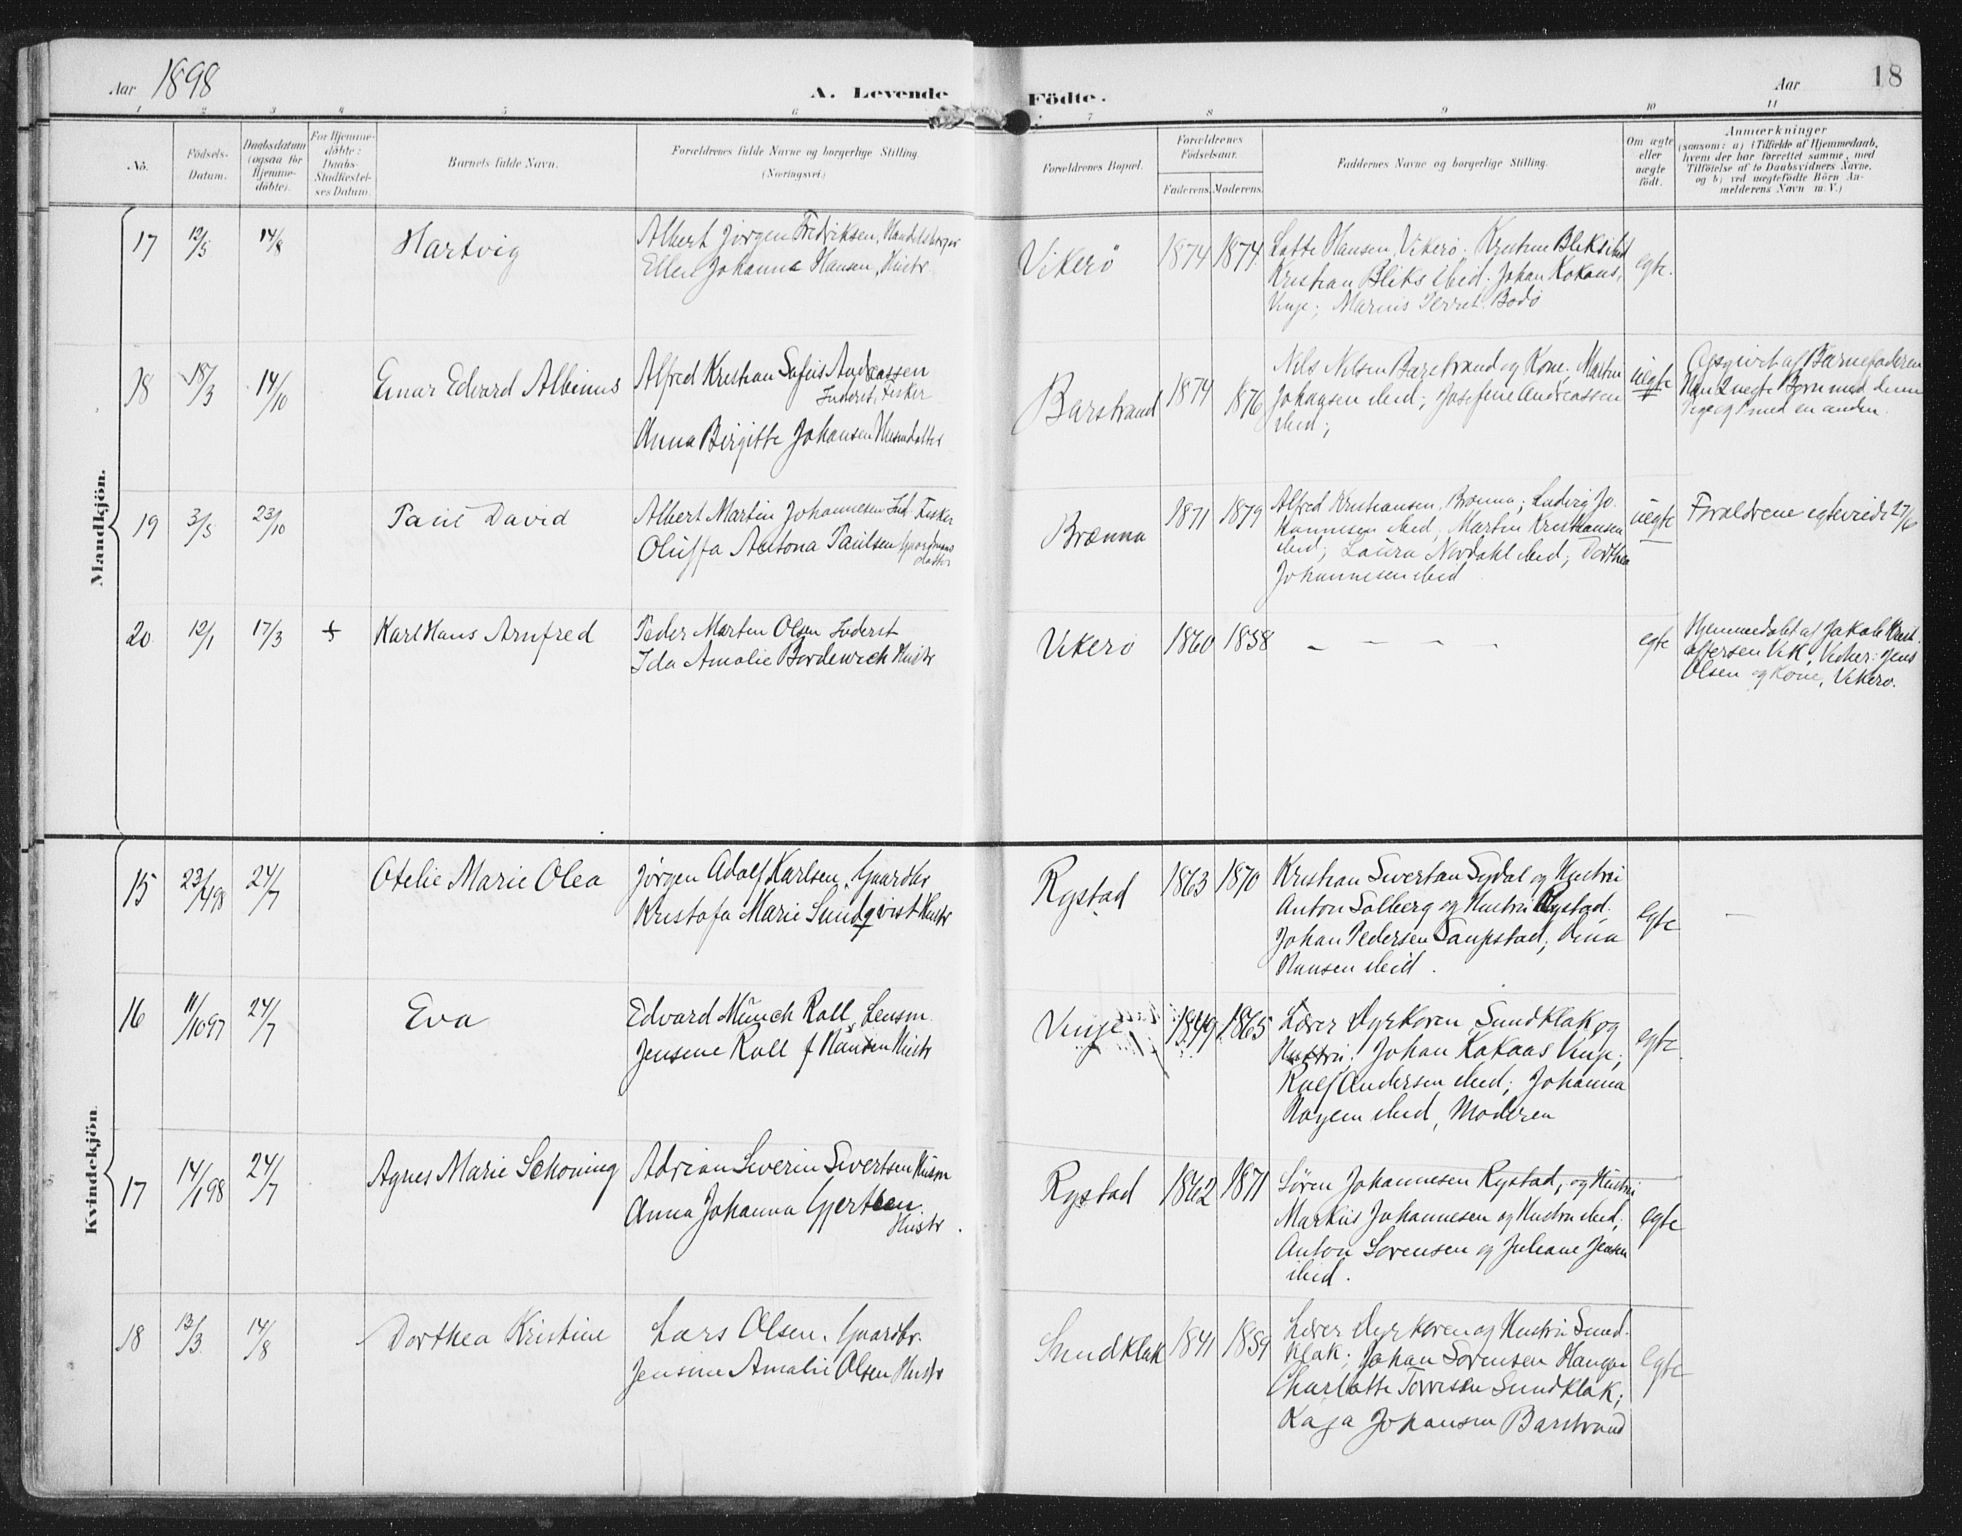 Aar 1898
A. Levende Födte.
Aar
18
1 2 3 4 5 6 7 8 9 10 11
No.
Födsels-
Datum.
Daabsdatum
(ogsaa for
Hjemme-
döbte).
For Hjemme-
döbte:
Daabs-
Stadfæstel-
ses Datum.
Barnets fulde Navn.
Forældrenes fulde Navne og borgerlige Stilling.
(Næringsvei.)
Forældrenes Bopæl.
Forældrenes
Födselsaar.
Faderens. Moderens.
Faddernes Navne og borgerlige Stilling.
Om ægte
eller
uægte
født.
Anmærkninger
(saasom: a) i Tilfælde af Hjemmedaab,
hvem der har forrettet samme, med
Tilföielse af to Daabsvidners Navne,
og b) ved uægtefödte Börn An-
melderens Navn m. V.)
Mandkjön.
17 12/5 14/8 Hartvig
Albert Jörgen Fredriksen, Handelsborger
Ellen Johanna Hansen, Hustr
Vikerö 1874 1874
Lotte Hansen, Vikerö. Kristine Bliks ibid
Kristian Bliks ibid. Johan Kokaas,
Vinje; Marius Bodö
egte.
18 18/3 14/10 Einar Edvard Albinus
Alfred Kristian Andreassen
Inderst, Fisker
Anna Birgitte Johansen Husmdatter
Barstrand 1874 1876
Nils Nilsen Barstrand og Kone, Martin
Johansen ibid; Josefine Andreassen
ibid;
uegte
Opgivet af Barnefaderen
Han 2 uegte Börn med denne
Pige og 1 med en anden.
19 3/5 23/10 Paul David
Albert Martin Johannesen Ind. Fisker
Oluffa Antona Paulsen Gaardmans
datter
Brænna 1871 1879
Alfred Kristiansen, Brænna; Ludvig Jo
hannesen ibid, Martin Kristiansen
ibid; Laura Nordahl ibid; Dorthea
Johannesen ibid
uegte
Foraldrene egteviede 27/6
20 12/1 17/3 + Karl Hans Arnfred
Peder Marten Olsen Inderst
Ida Amalie Bordewich Hustr
Vikerö 1860 1858
– – – –
egte
Hjemmedöbt af Jakob Krist.
offersen Vik, Vidner: Jens
Olsen og Kone, Vikerö.
Kvindekjön.
15 23/4 98 24/7 Otelie Marie Olea
Jørgen Adolf Karlsen, Gaardbr
Kristofa Marie Sundqvist Hustr
Rystad 1863 1870
Kristian Sivertsen Sydal og Hustru
Anton Solberg og Hustru Rystad.
Johan Pedersen Taupstad; Dina
Hansen ibid.
egte
–
16 11/10 97 24/7 Eva
Edvard Münch Rall, Lensm.
Jensine Rall f Hansen Hustr
Vinje 1849 1865
Lærer Dyrkoren, Sundklak og
Hustru. Johan Kokaas Vinje;
Andersen ibid; Johanna
ibid, Moderen
egte
17 14/1 98 24/7 Agnes Marie Schöning
Adrian Severin Sivertsen Husm
Anna Johanna Gjertsen
Hustr.
Rystad 1862 1871
Søren Johannesen Rystad, og Hustru
Markus Johannesen og Hustru ibid;
Anton Sørensen og Juliane Jensen
ibid.
egte
18 13/3 14/8 Dorthea Kristine
Lars Olsen, Gaardbr.
Jensine Amalie Olsen Hustr
Sundklak 1841 1859
Lærer Dyrkoren og Hustru Sund-
klak; Johan Sörensen
Charlotte Torrissen Sundklak;
Kaja Johansen Barstrand
egte